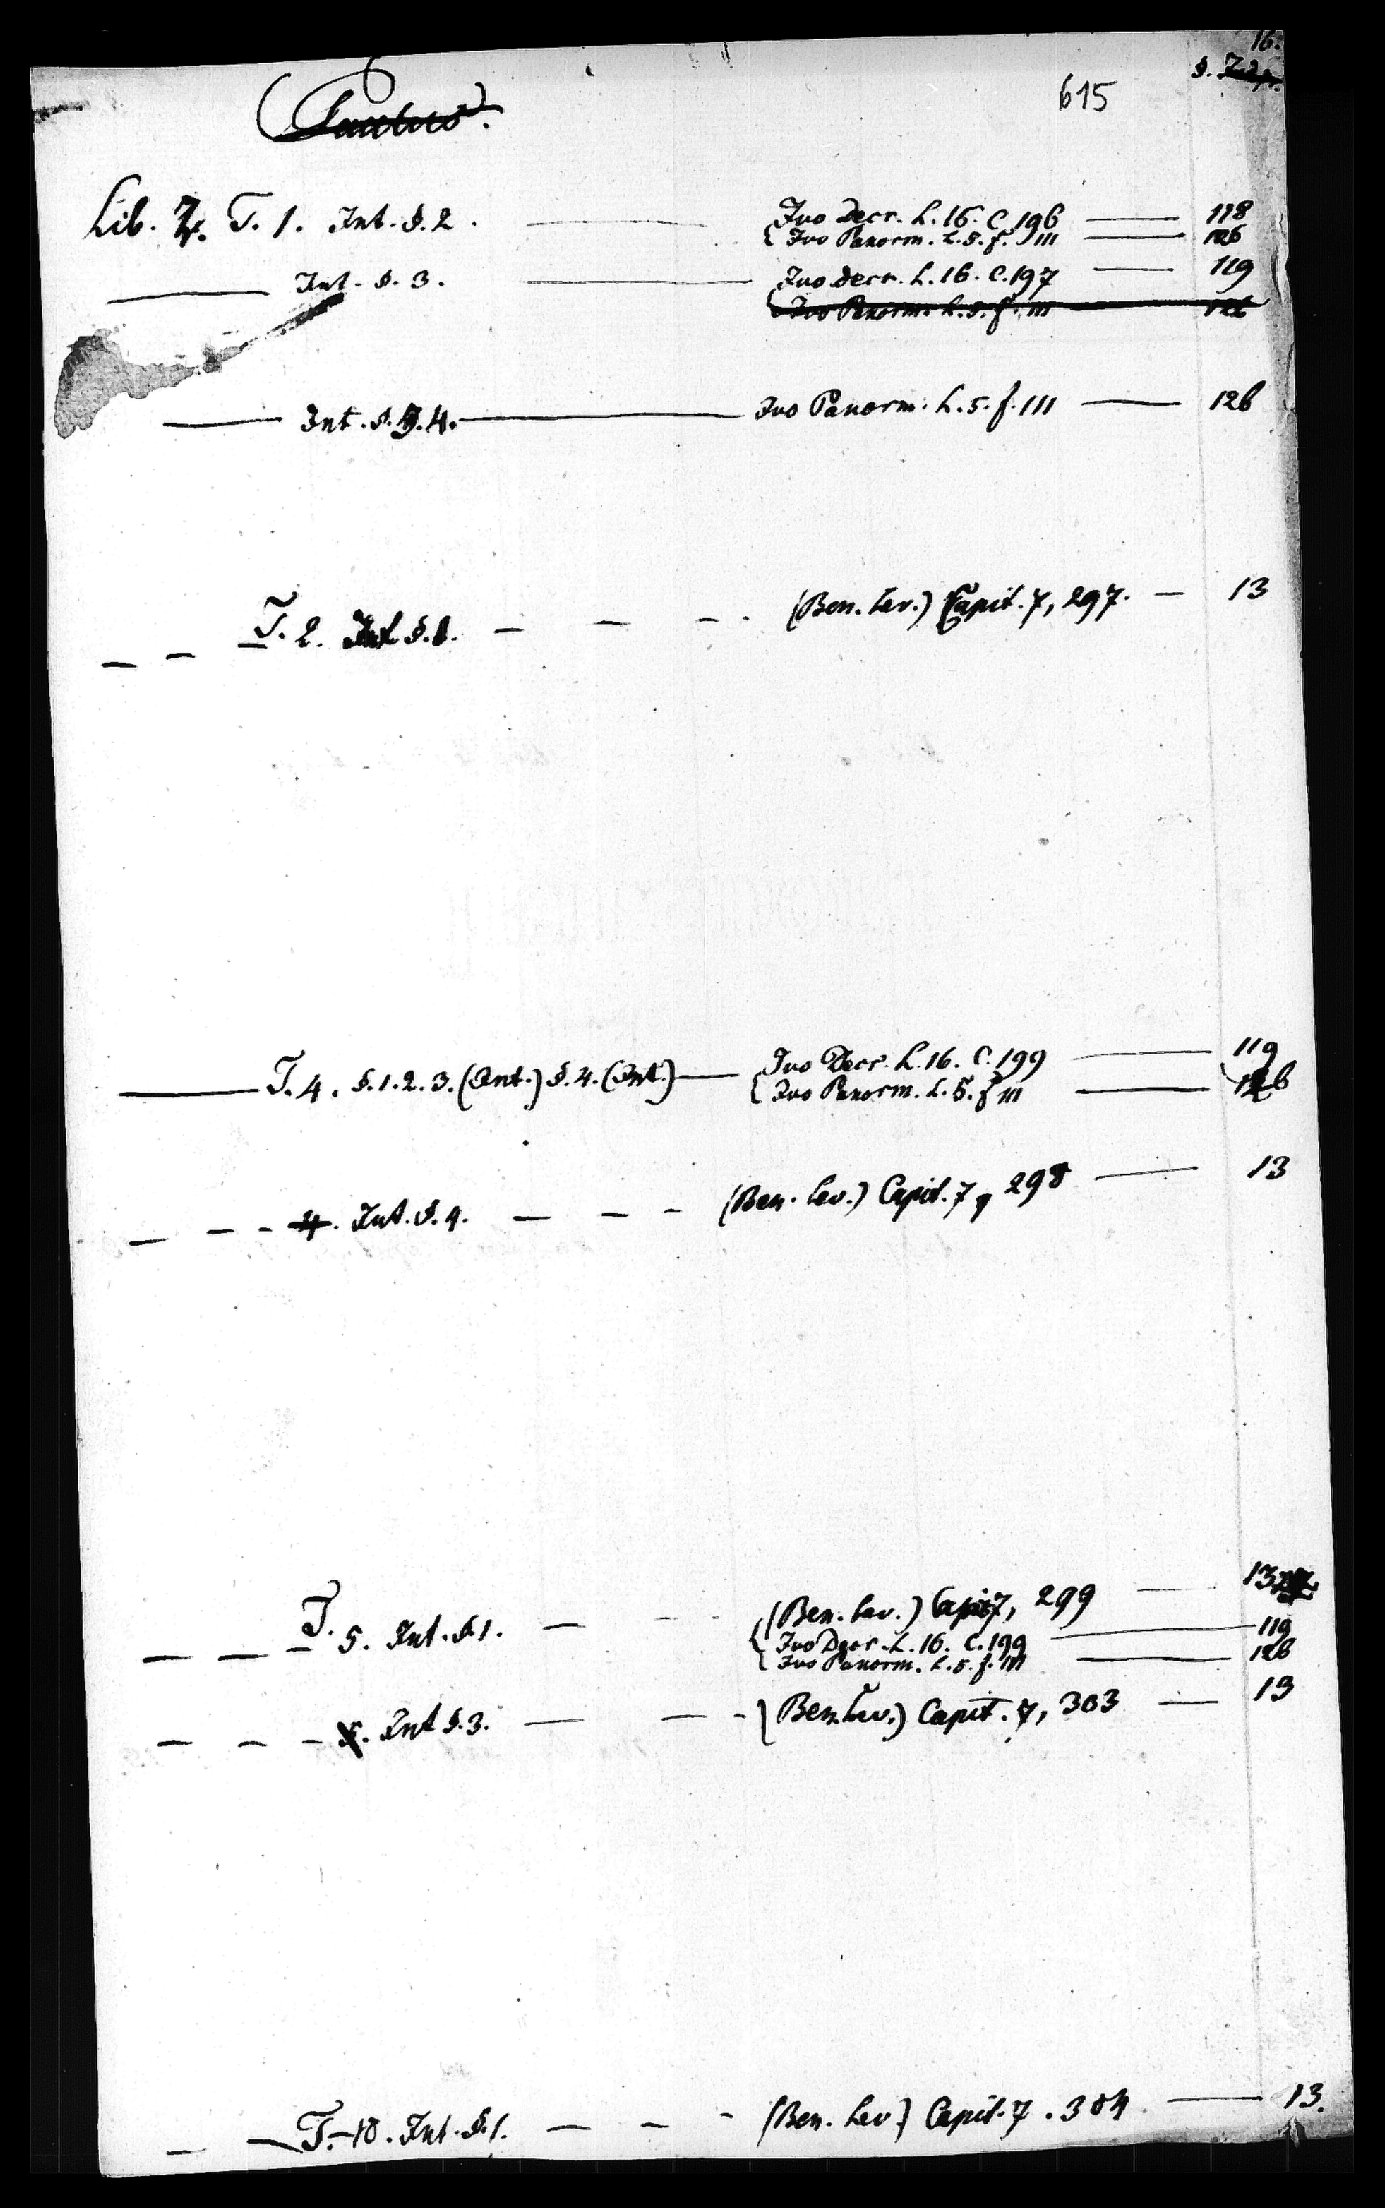 16.
615
(Paulus).
Lib. 4. T. 1. Int. §. 2. — Ivo Decr. L. 16. C. 196 — 118
Ivo Panorm. L. 5. f. 111 — 126
— Int. §. 3. — Ivo decr. L. 16. C. 197 — 119
Ivo Panorm. L. 5. f. 111 — 126
— Int. §. 4. — Ivo Panorm. L. 5. f. 111 — 126
— — T. 2. Int §. 1. — — — (Ben. Lev.) Capit. 7, 297. — 13
— T. 4. §. 1. 2. 3. (Int.) §. 4. (Int.) — Ivo Decr. L. 16. C. 199 — 119
Ivo Panorm. L. 5. f 111 — 126
— — — 4. Int. §. 4. — — — (Ben. Lev.) Capit. 7, 298 — 13
— — — T. 5. Int. §1. — — — (Ben. Lev.) Capit 7, 299 — 13
Ivo Decr. L. 16. C. 199 — 119
Ivo Panorm. L. 5. f. 111 — 126
— — — 5. Int §. 3. — — — (Ben. Lev.) Capit. 7, 303 — 13
— — T. 10. Int. §. 1. — — — (Ben. Lev.) Capit. 7. 304 — 13.